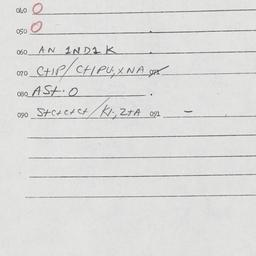 040 O
050 O
060 AN 2ND1K .
070 CTIP/CTIPU,XNA
080 AST.O .
090 Stctctct/KI-,ZTA 091 -